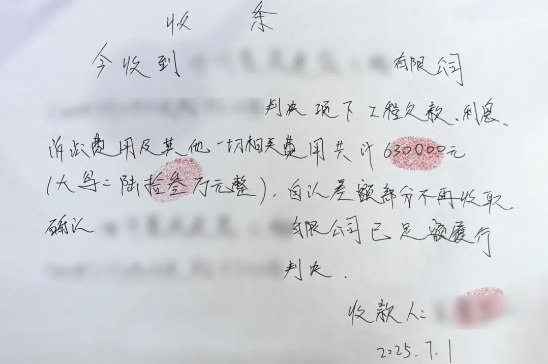 收条
今收到 有限公司
判决项下工程欠款、利息、
诉讼费用及其他一切相关费用共计630000元
(大写:陆拾叁万元整),自认差额部分不再收取,
确认 有限公司已足额履行
判决.
收款人:
2025.7.1